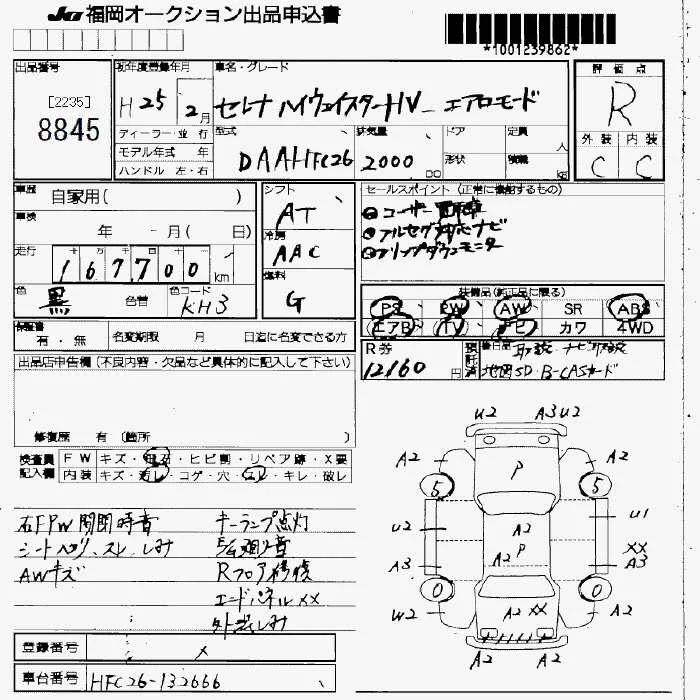 JU 福岡オークション出品申込書
*1001239862*
出品番号 初年度登録年月 車名・グレード 評価点
[2235]
8845
H25 2月 セレナ ハイウェイスターHV エアロモード R
ディーラー・並行 型式 排気量 ドア 定員 人 外装 内装
モデル年式 年 DAAHFC26 2000 cc 形状 積載 kg C C
ハンドル 左・右
車歴 自家用( ) シフト AT セールスポイント (正常に機能するもの)
車検 年 - 月( 日) 冷房 AAC ユーザー買取車
フルセグ対応ナビ
フリップダウンモニター
走行 十 万 千 百 十 一
167700 km 燃料 G
色 黒 色替 色コード KH3
装備品(純正品に限る)
PS PW AW SR ABS
エアB TV ナビ カワ 4WD
保証書 有・無 名変期限 月 日迄に名変できる方
R券 12160 円 預託済 後日品 取説・ナビ取説
地図SD・B-CASカード
出品店申告欄(不良内容・欠品など具体的に記入して下さい)
修復歴 有 (箇所 )
検査員 FW キズ・飛石・ヒビ割・リペア跡・X要
記入欄 内装 キズ・汚レ・コゲ・穴・キレ・破レ
右FPW開閉時音 キーランプ点灯
シートヘタリ、スレ、しみ
AWキズ Rフロア修復
エンドパネルXX
登録番号
車台番号 HFC26-132666
U2 A3U2
A2 P A2
5 5
U2 A2 U1
A2 P XX
A3 A3
0 0
W2 A2 XX A2
A2 A2